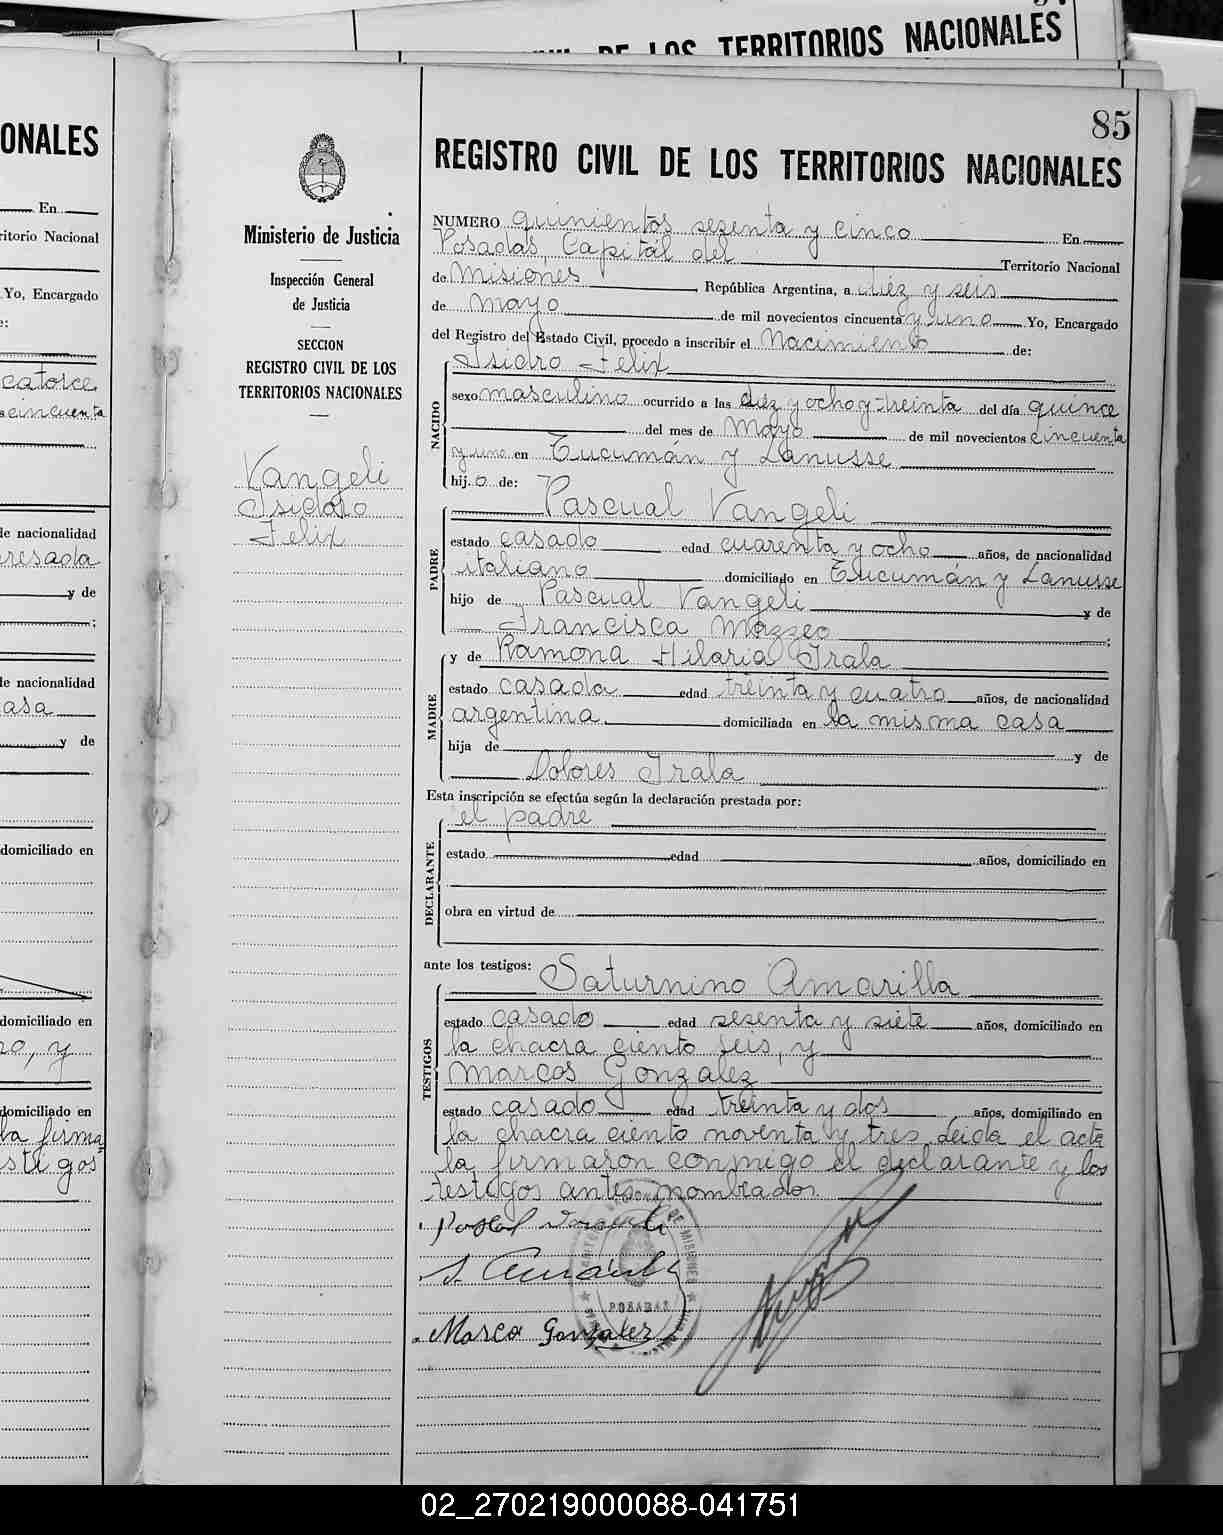 DE LOS TERRITORIOS NACIONALES
85
ONALES
En
ritorio Nacional
Yo, Encargado
catorce
cincuenta
de nacionalidad
resada
y de
de nacionalidad
asa
y de
domiciliado en
domiciliado en
ro, y
domiciliado en
la firma
stigos
Ministerio de Justicia
Inspección General
de Justicia
SECCION
REGISTRO CIVIL DE LOS
TERRITORIOS NACIONALES
Vangeli
Isidoro
Felix
REGISTRO CIVIL DE LOS TERRITORIOS NACIONALES
NUMERO quinientos sesenta y cinco En
Posadas, Capital del Territorio Nacional
de Misiones, República Argentina, a diez y seis
de mayo de mil novecientos cincuenta y uno Yo, Encargado
del Registro del Estado Civil, procedo a inscribir el Nacimiento de:
NACIDO
Isidro Felix
sexo masculino ocurrido a las diez y ocho y treinta del día quince
del mes de Mayo de mil novecientos cincuenta
y uno en Tucumán y Lanusse
hijo de:
PADRE
Pascual Vangeli
estado casado edad cuarenta y ocho años, de nacionalidad
italiano domiciliado en Tucumán y Lanusse
hijo de Pascual Vangeli y de
Francisca Mazzeo;
MADRE
y de Ramona Hilaria Irala
estado casada edad treinta y cuatro años, de nacionalidad
argentina domiciliada en la misma casa
hija de y de
Dolores Irala
Esta inscripción se efectúa según la declaración prestada por:
DECLARANTE
el padre
estado edad años, domiciliado en
obra en virtud de
ante los testigos: Saturnino Amarilla
TESTIGOS
estado casado edad sesenta y siete años, domiciliado en
la chacra ciento seis, y
Marcos Gonzalez
estado casado edad treinta y dos años, domiciliado en
la chacra ciento noventa y tres. Leida el acta
la firmaron conmigo el declarante y los
testigos antes nombrados.
Pascual Vangeli
S. Amarilla
POSADAS
DE MISIONES
Marco Gonzalez
02_270219000088-041751